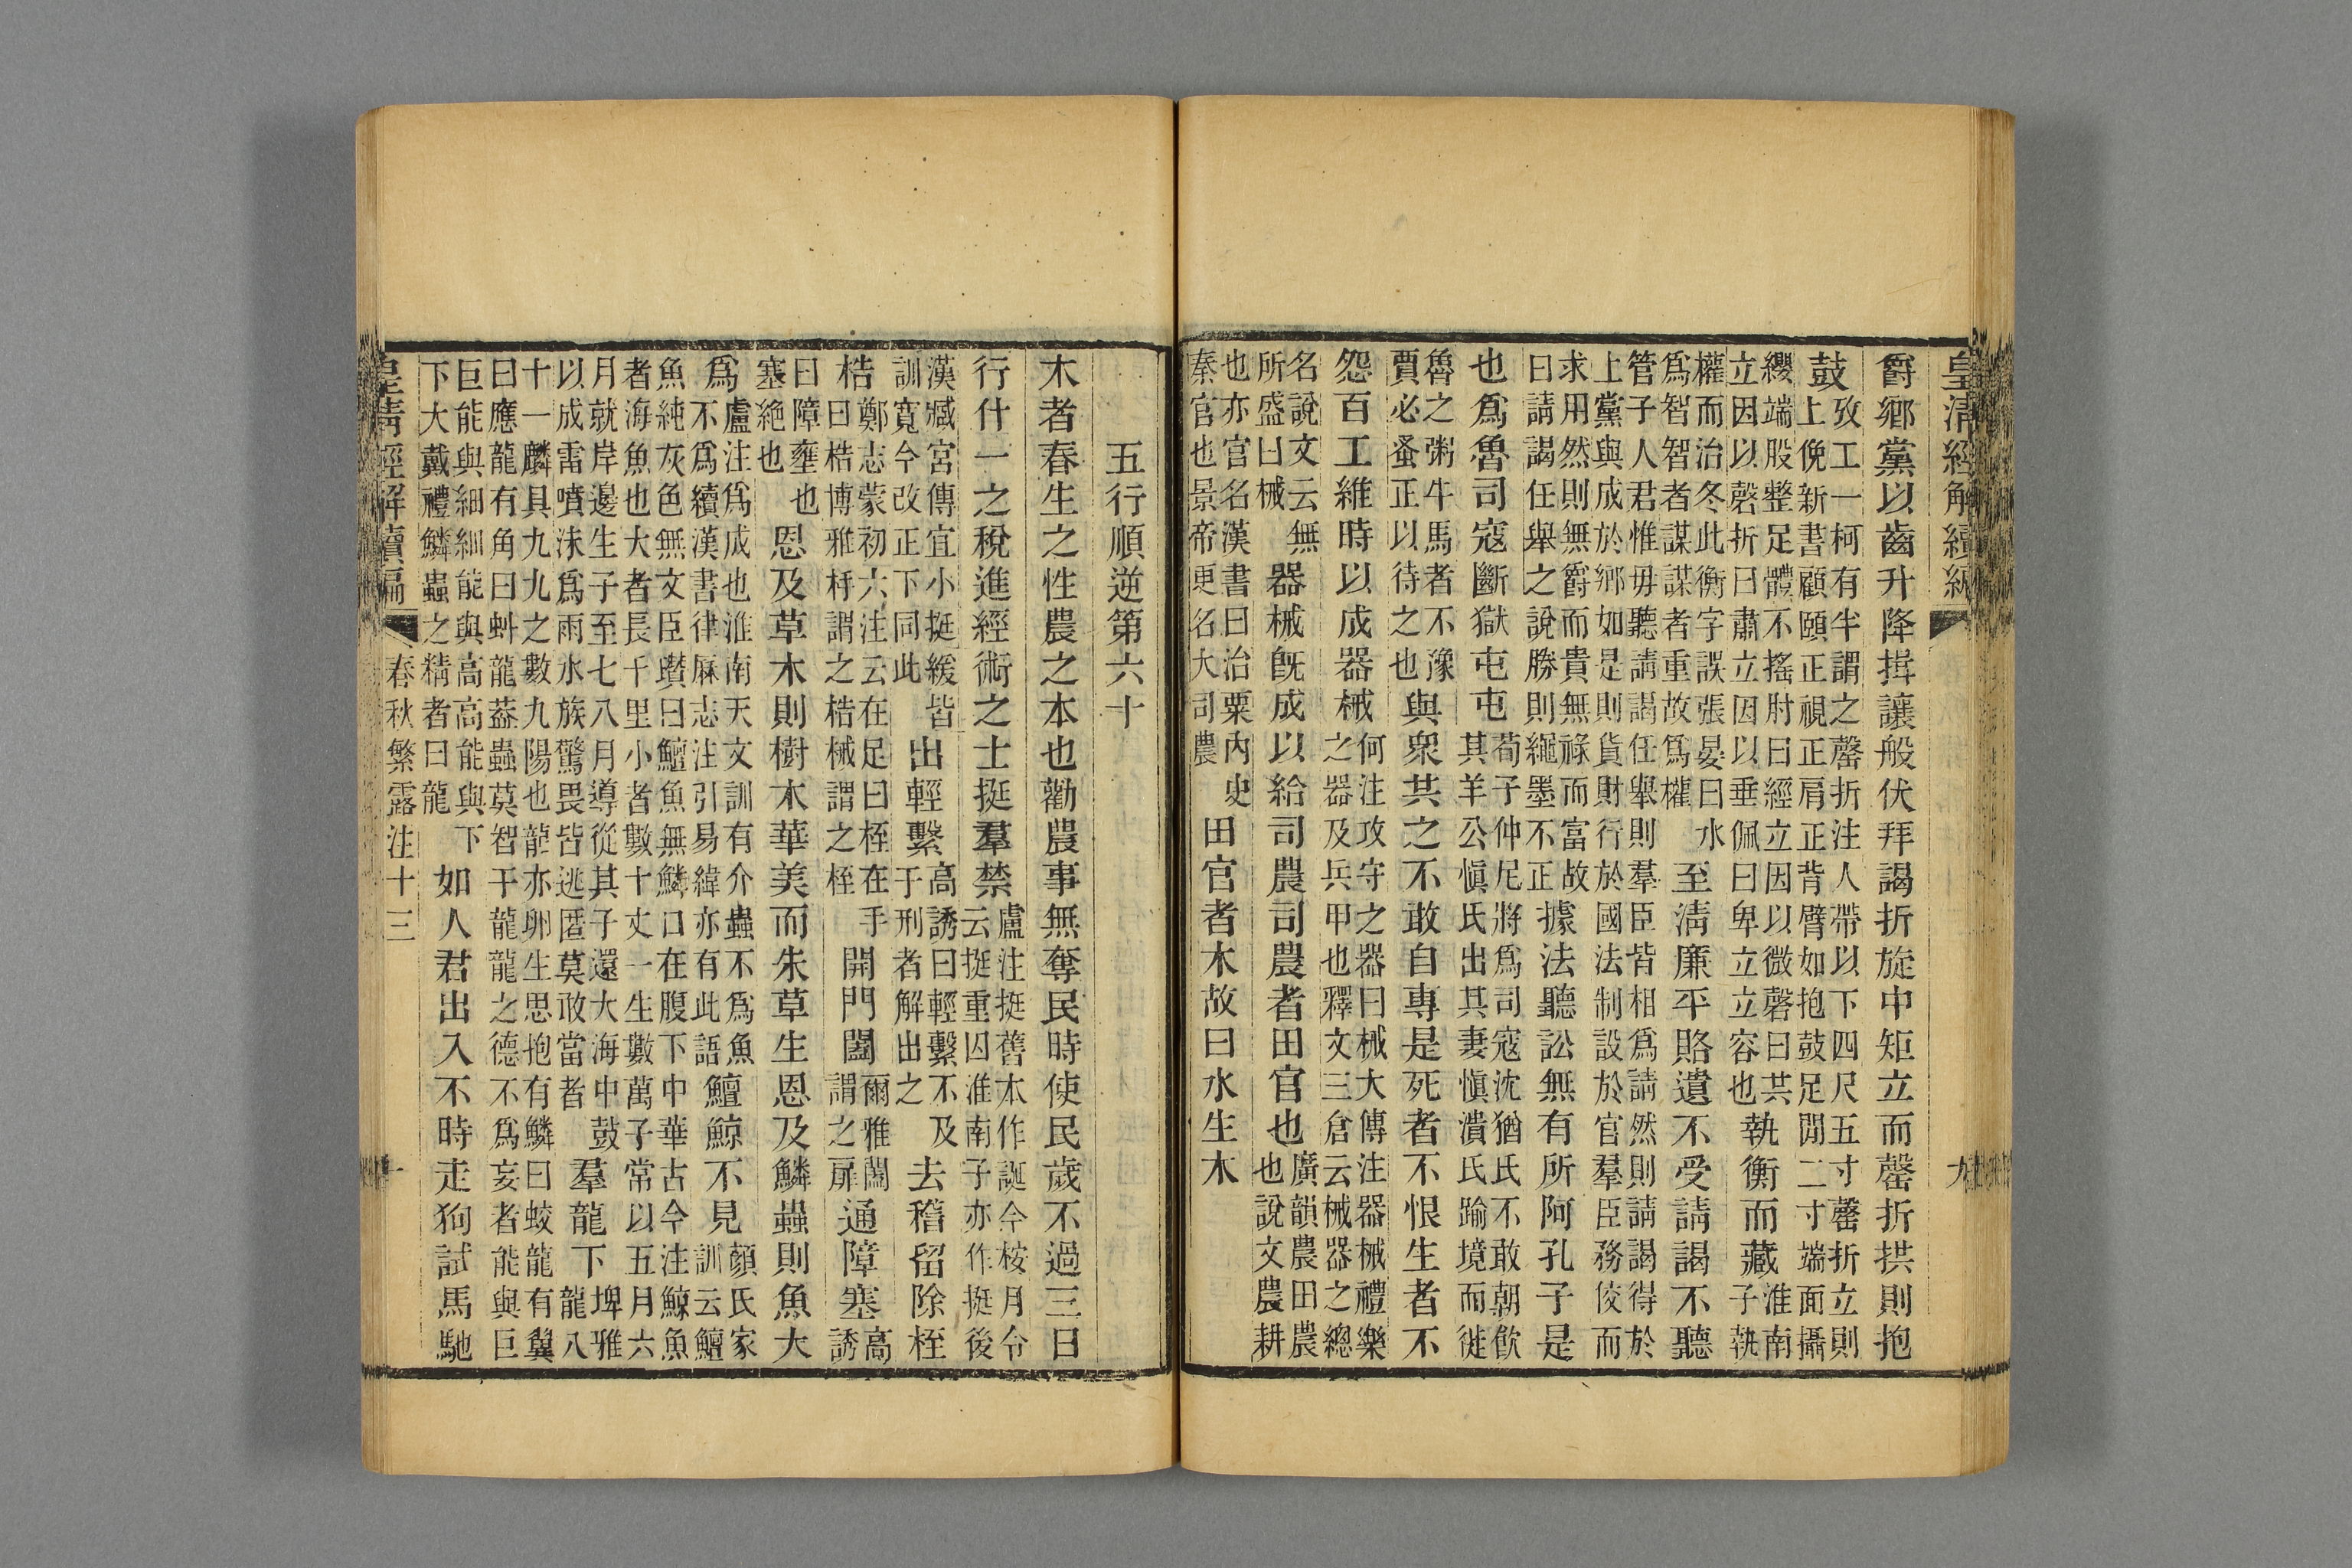 皇清經解續編 九
爵鄉黨以齒升降揖讓般伏拜謁折旋中矩立而罄折拱則抱
鼓
攷工一柯有半謂之罄折注人帶以下四尺五寸罄折立則
上俛新書顧頤正視正肩正背臂如抱鼓足閒二寸端面攝
纓端股整足體不搖肘曰經立因以微磬曰共
立因以磬折曰肅立因以垂佩曰卑立立容也
執衡而藏
淮南
子執
權而治冬此衡字誤張晏曰水
爲智智者謀謀者重故爲權
至淸廉平賂遺不受請謁不聽
管子人君惟毋聽請謁任舉則羣臣皆相爲請然則請謁得於
上黨與成於鄉如是則貨財行於國法制設於官羣臣務佼而
求用然則無爵而貴無祿而富故
曰請謁任舉之說勝則繩墨不正
據法聽訟無有所阿孔子是
也爲魯司寇斷獄屯屯
荀子仲尼將爲司寇沈猶氏不敢朝飮
其羊公愼氏出其妻愼潰氏踰境而徙
魯之粥牛馬者不豫
賈必蚤正以待之也
與衆共之不敢自專是死者不恨生者不
怨百工維時以成器械
何注攻守之器曰械大傳注器械禮樂
之器及兵甲也釋文三倉云械器之總
名說文云無
所盛曰械
器械旣成以給司農司農者田官也
廣韻農田農
也說文農耕
也亦官名漢書曰治粟內史
秦官也景帝更名大司農
田官者木故曰水生木
五行順逆第六十
木者春生之性農之本也勸農事無奪民時使民歲不過三日
行什一之稅進經術之士挺羣禁
盧注挺舊本作誕今桉月令
云挺重囚淮南子亦作挺後
漢臧宮傳宜小挺緩皆
訓寬今改正下同此
出輕繫
高誘曰輕繫不及
于刑者解出之
去稽留除桎
梏
鄭志蒙初六注云在足曰桎在手
曰梏博雅杽謂之梏械謂之桎
開門闔
爾雅闔
謂之扉
通障塞
高
誘
曰障壅也
塞絕也
恩及草木則樹木華美而朱草生恩及鱗蟲則魚大
爲
盧注爲成也淮南天文訓有介蟲不爲魚
不爲續漢書律厤志注引易緯亦有此語
鱣鯨不見
顏氏家
訓云鱣
魚純灰色無文臣瓚曰鱣魚無鱗口在腹下中華古今注鯨魚
者海魚也大者長千里小者數十丈一生數萬子常以五月六
月就岸邊生子至七八月導從其子還大海中鼓
以成雷噴沫爲雨水族驚畏皆逃匿莫敢當者
羣龍下
埤雅
龍八
十一鱗具九九之數九陽也龍亦卵生思抱有鱗曰蛟龍有翼
曰應龍有角曰虯龍蓋蟲莫智于龍龍之德不爲妄者能與巨
巨能與細細能與高高能與下
下大戴禮鱗蟲之精者曰龍
如人君出入不時走狗試馬馳
皇清經解續編 春秋繁露注十三